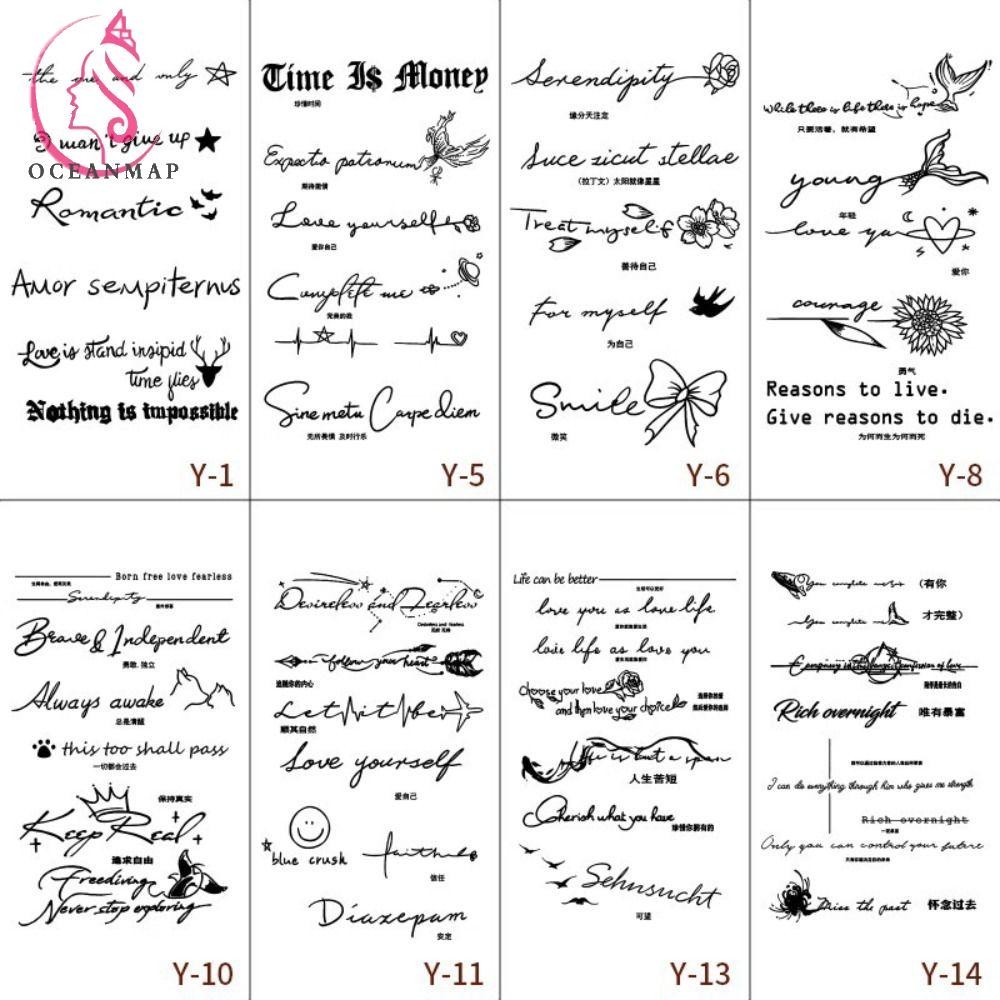 the one and only
OCEANMAP
give up
Romantic
Amor sempiternus
Love is stand insipid
time flies
Nothing is impossible
Y-1
Time I$ Money
珍惜时间
Expecto patronum
期待激情
Love yourself
爱你自己
Complete me
完美的我
Sine metu Carpe diem
无所畏惧 及时行乐
Y-5
Serendipity
缘分天注定
Luce sicut stellae
(拉丁文) 太阳就像星星
Treat myself
善待自己
For myself
为自己
Smile
微笑
Y-6
While there is life there is hope
只要活着，就有希望
young
年轻
love ya
爱你
courage
勇气
Reasons to live.
Give reasons to die.
为何而生为何而死
Y-8
Born free love fearless
Serendipity
Brave & Independent
勇敢. 独立
Always awake
总是清醒
this too shall pass
一切都会过去
保持真实
Keep Real
追求自由
Freediving
Never stop exploring
Y-10
Desireless and Fearless
Desireless and fearless
follow your heart
追随你的内心
Let it be
顺其自然
Love yourself
爱自己
blue crush
faith
信任
Diazepam
安定
Y-11
Life can be better
生活可以更好
love you as love life
love life as love you
Choose your love
and then love your choice
选择你的爱
然后爱你的选择
life is but a span
人生苦短
Cherish what you have
珍惜你拥有的
Sehnsucht
可望
Y-13
You complete me
(有你
You complete me
才完整)
Company is the longest confession of love
陪伴是最长的告白
Rich overnight
唯有暴富
I can do everything through him who gives me strength
Rich overnight
一夜暴富
Only you can control your future
Miss the past
怀念过去
Y-14